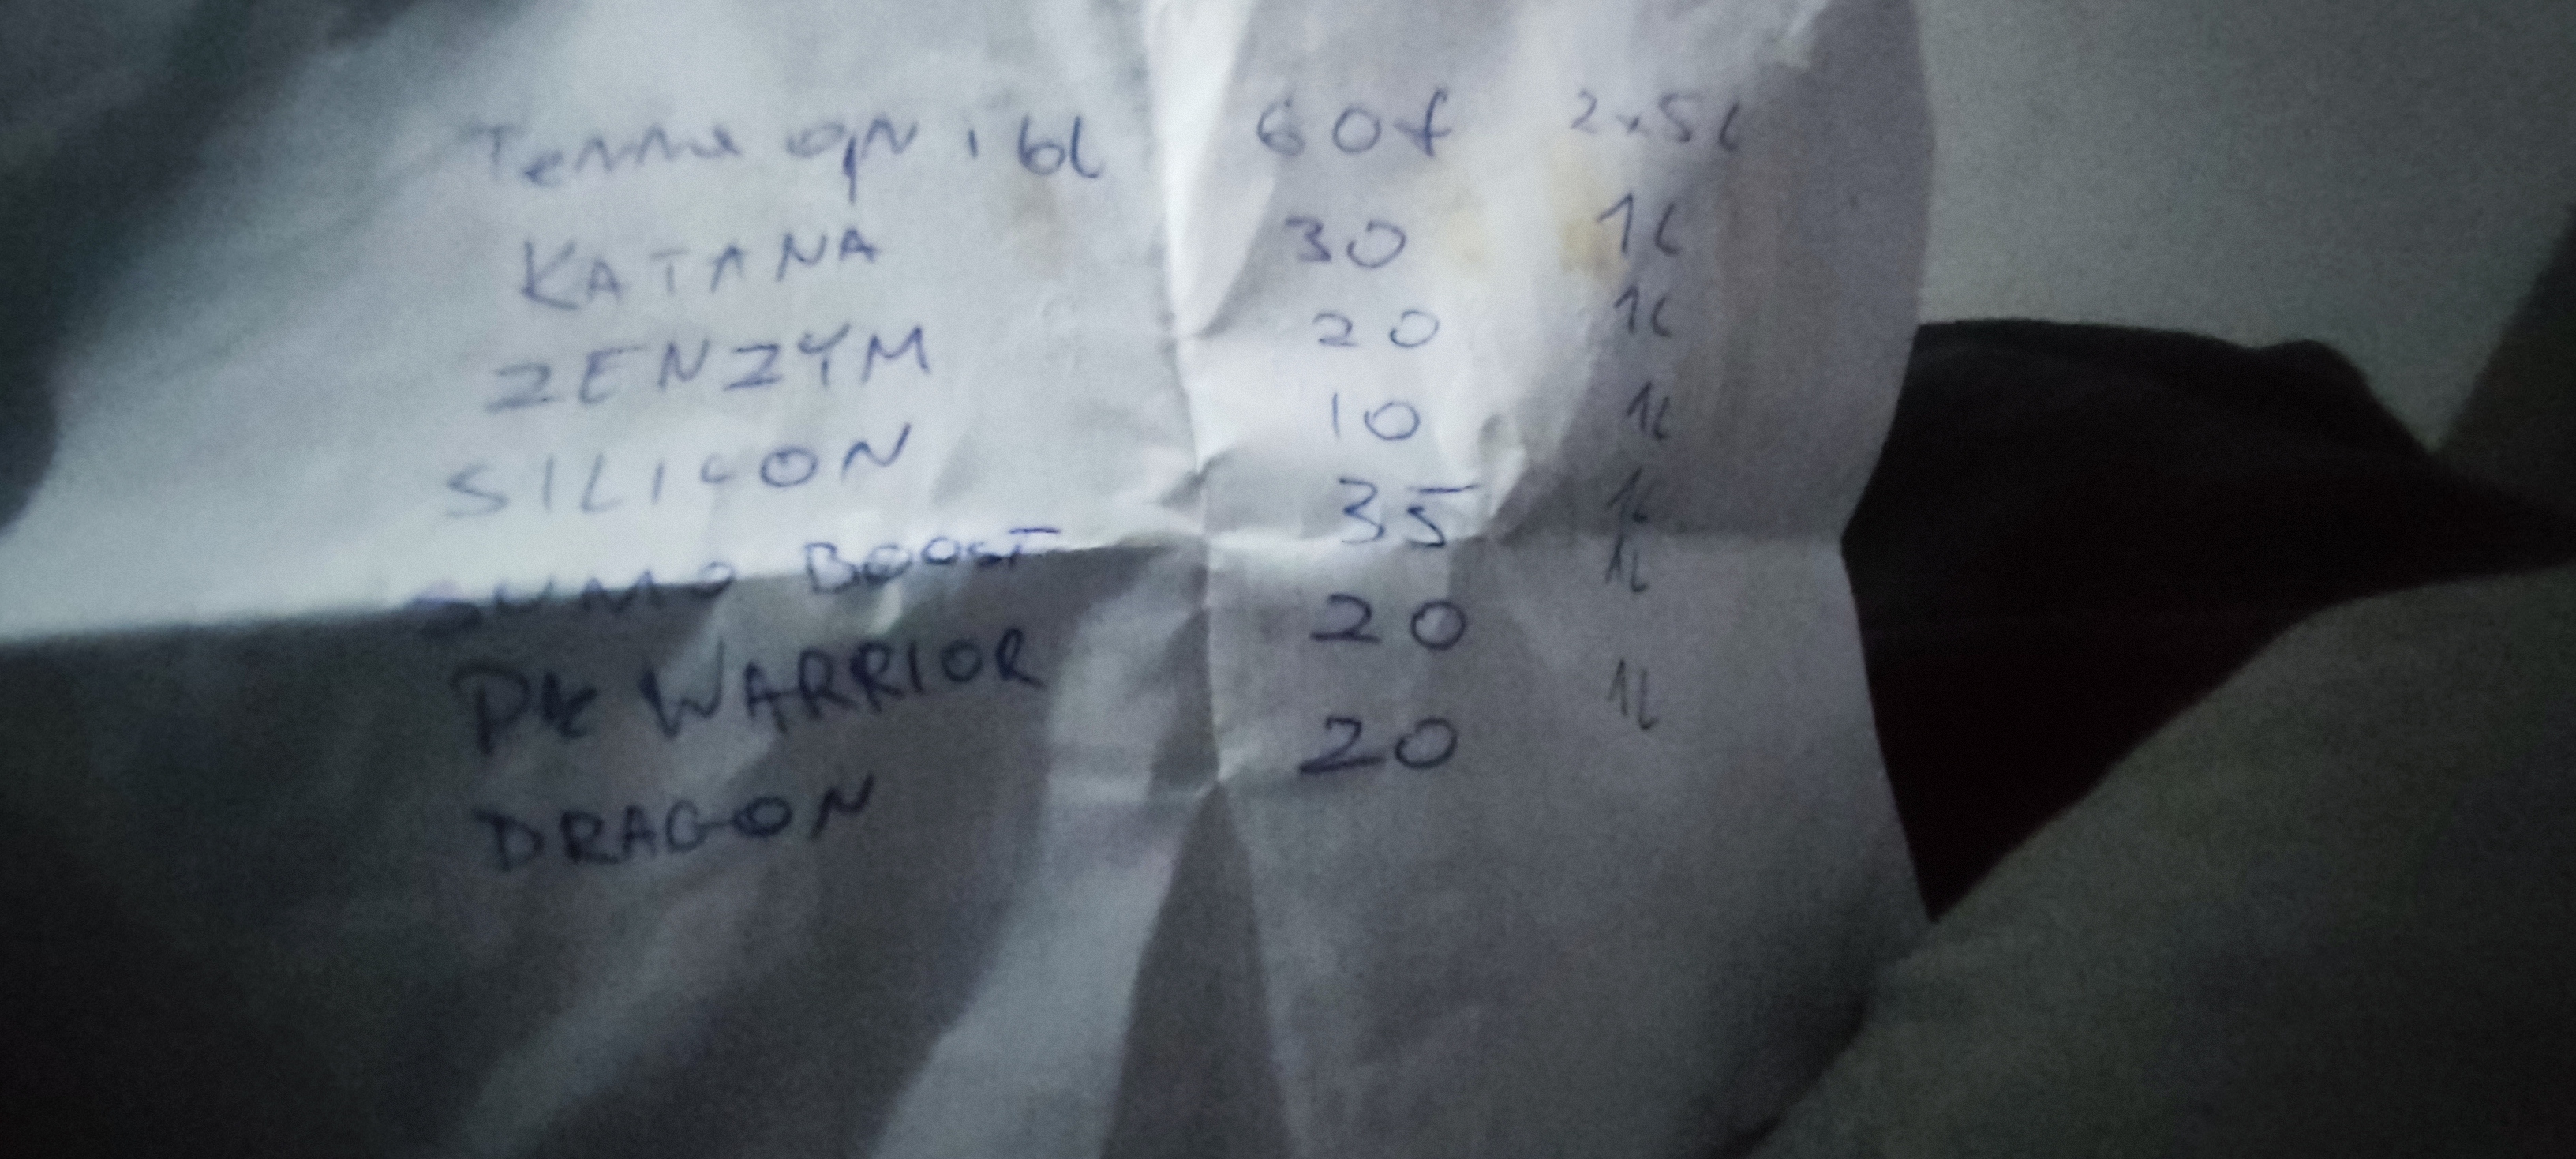 Terra gr i bl 60f 2x5l
KATANA 30 1l
ZENZYM 20 1l
SILICON 10 1l
SUMO BOOST 35 1l
PK WARRIOR 20 1l
DRAGON 20 1l